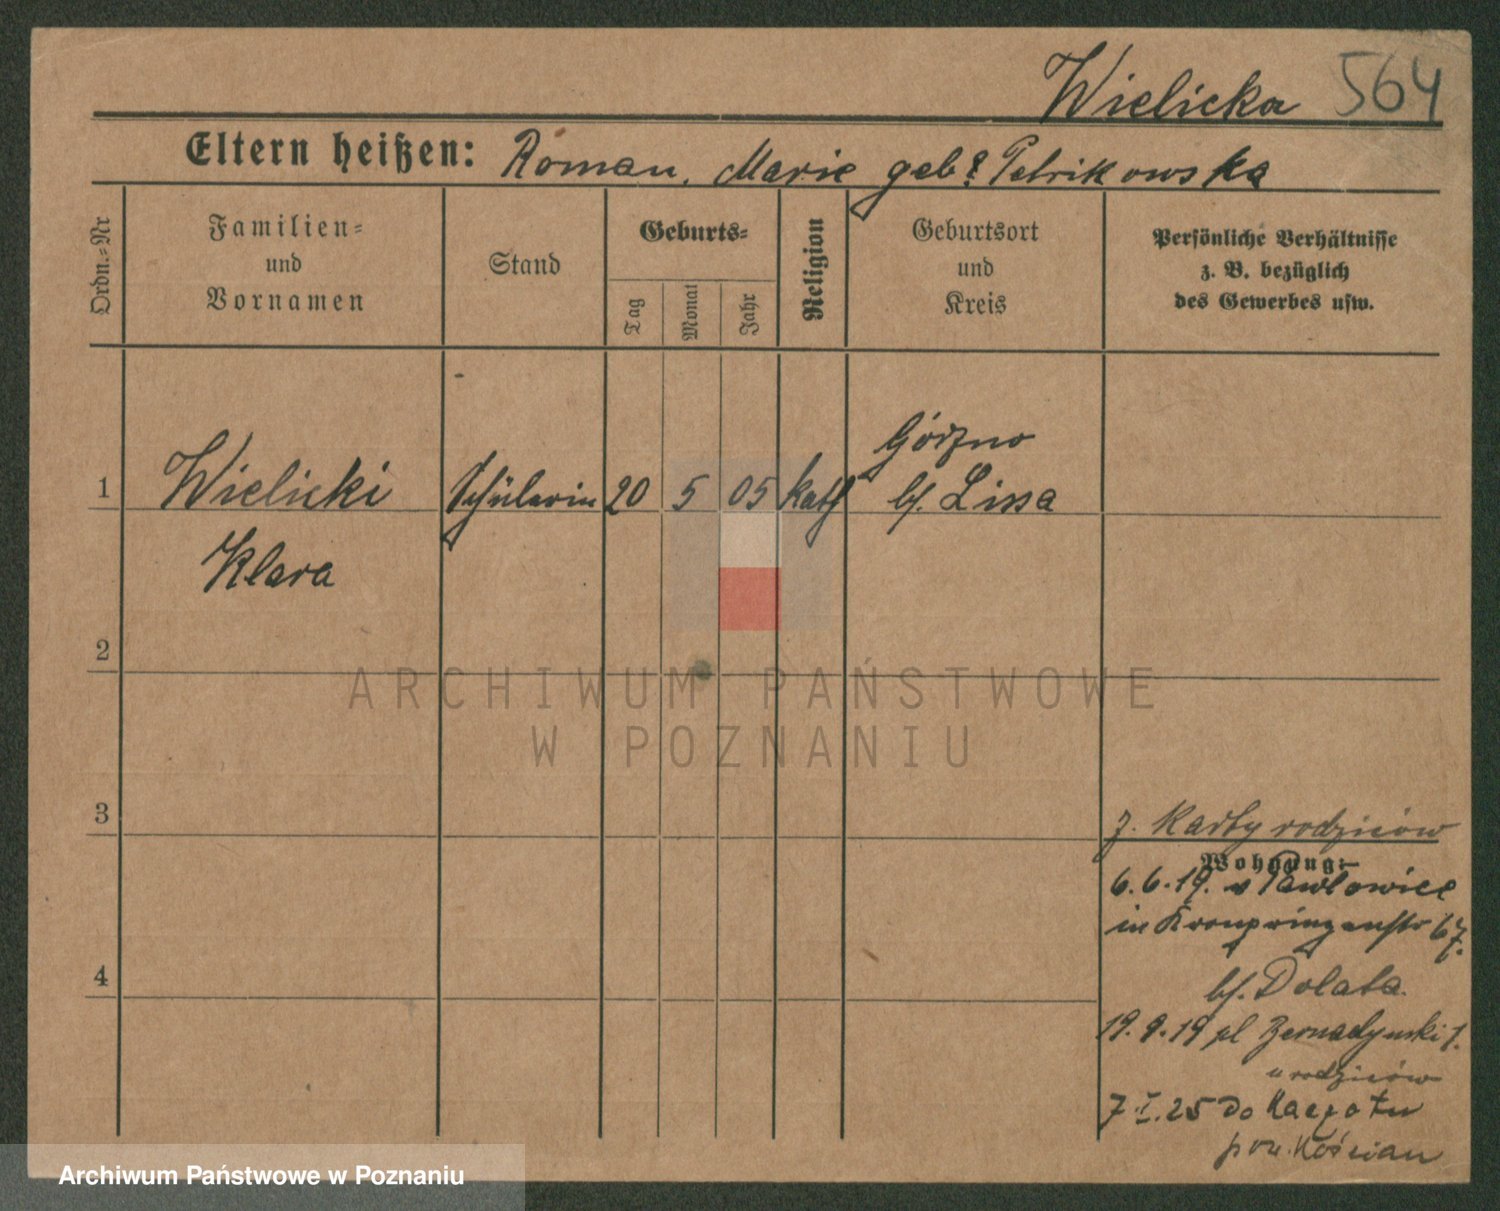 Wielicka 564
Eltern heißen: Roman, Marie geb. Petrikowska
Ordn.-Nr
Familien-
und
Vornamen
Stand
Geburts-
Tag
Monat
Jahr
Religion
Geburtsort
und
Kreis
Persönliche Verhältnisse
z. B. bezüglich
des Gewerbes usw.
Górzno
1 Wielicki Schülerin 20 5 05 kath b/. Lissa
Klara
2
ARCHIWUM PAŃSTWOWE
W POZNANIU
3
z. Karty rodziców
Wohnung:
6.6.19. v Pawlowice
in Kronprinzenstr 67.
4
b/. Dolata.
19.9.19 pl Bernadynski 1.
u rodziców
7.I.25 do
pow. Kościan
Archiwum Państwowe w Poznaniu